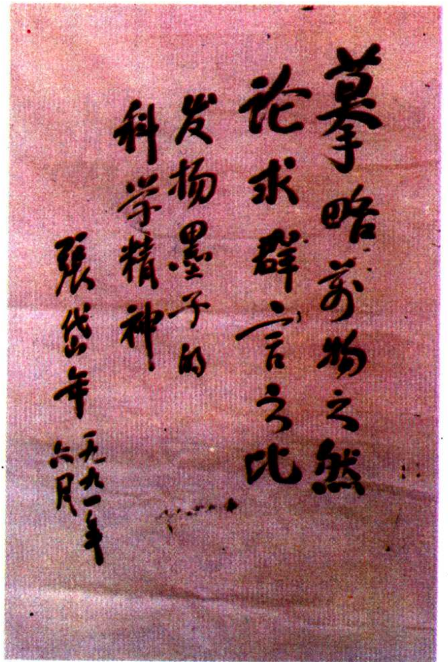 摹略万物之然
论求群言之比
发扬墨子的
科学精神
張岱年
一九九一年
六月